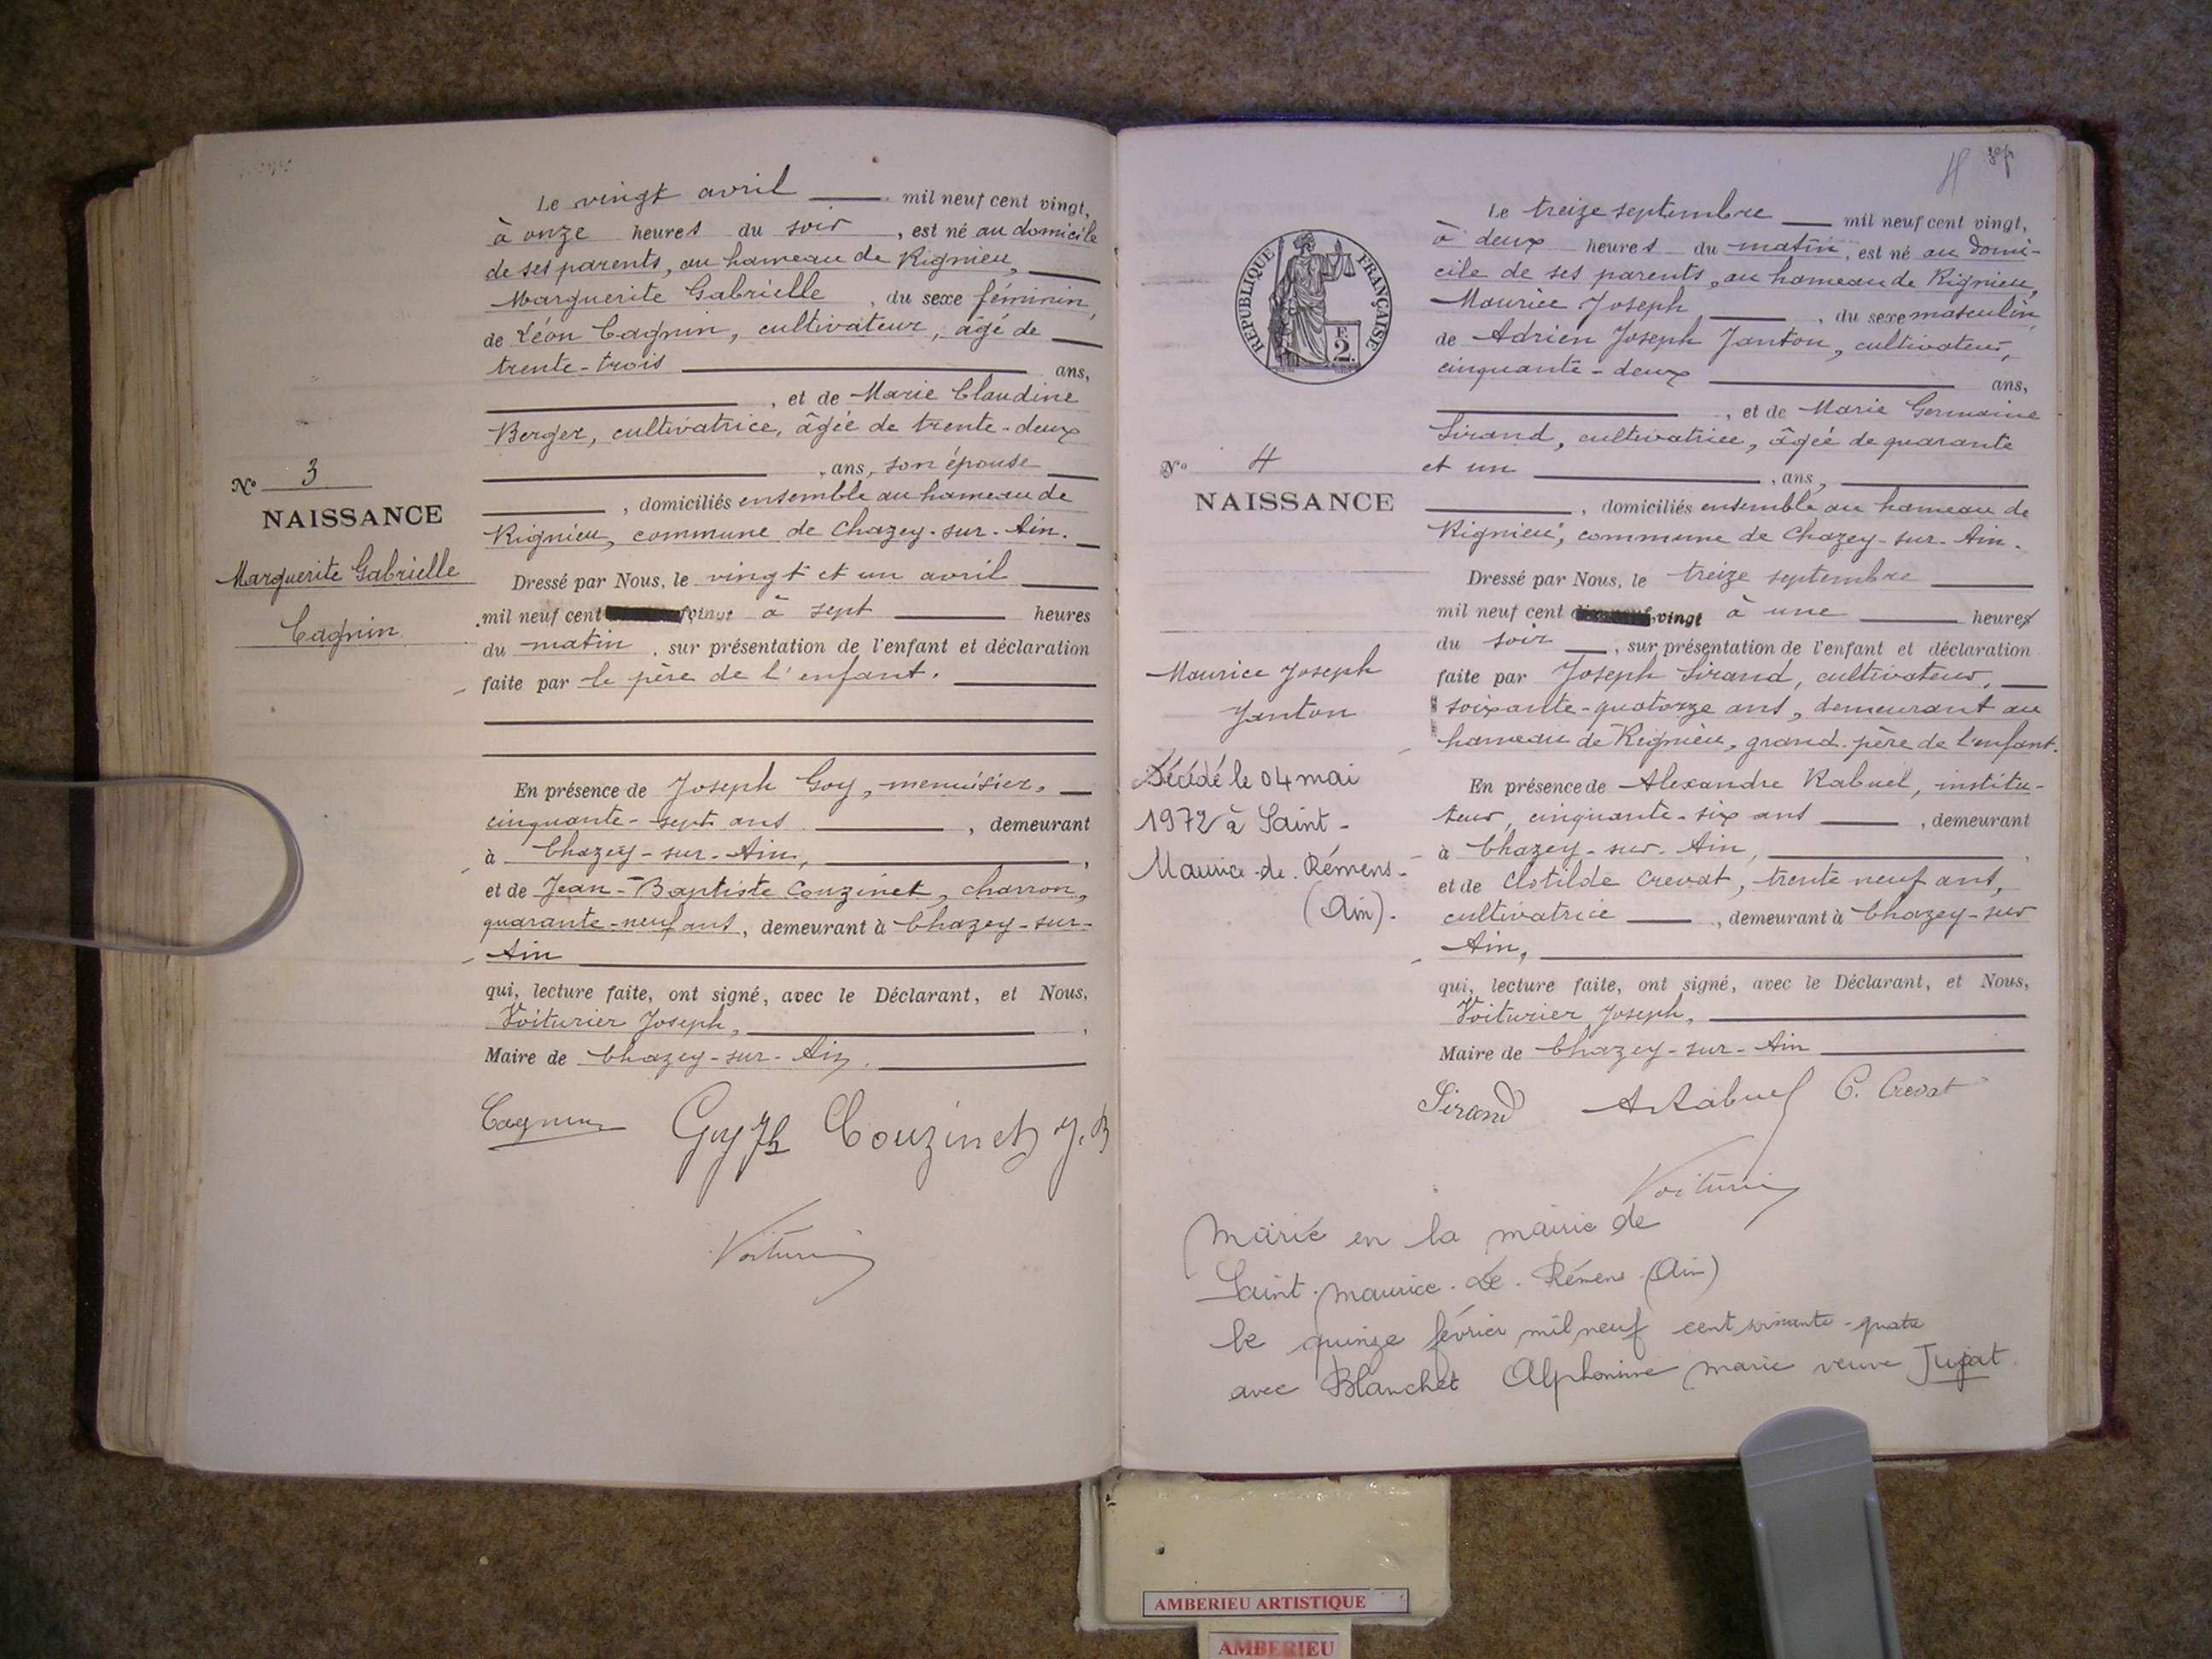 Le vingt avril mil neuf cent vingt,
à onze heures du soir, est né au domicile
de ses parents, au hameau de Rignieu,
Marguerite Gabrielle, du sexe féminin,
de Léon Cagnin, cultivateur, âgé de
trente-trois ans,
, et de Marie Claudine
Berger, cultivatrice, âgée de trente-deux
, ans, son épouse
, domiciliés ensemble au hameau de
Rignieu, commune de Chazey-sur-Ain.
N° 3
NAISSANCE
Marguerite Gabrielle
Cagnin
Dressé par Nous, le vingt et un avril
mil neuf cent vingt à sept heures
du matin, sur présentation de l'enfant et déclaration
faite par le père de l'enfant.
En présence de Joseph Goy, menuisier,
cinquante-sept ans, demeurant
à Chazey-sur-Ain,
et de Jean-Baptiste Couzinet, charron,
quarante-neuf ans, demeurant à Chazey-sur-
Ain
qui, lecture faite, ont signé, avec le Déclarant, et Nous,
Voiturier Joseph,
Maire de Chazey-sur-Ain.
Cagnin Goy Jh Couzinet J. B
Voiturier
4
Le treize septembre mil neuf cent vingt,
à deux heures du matin, est né au domi-
cile de ses parents, au hameau de Rignieu,
Maurice Joseph, du sexe masculin
de Adrien Joseph Janton, cultivateur,
cinquante-deux ans,
, et de Marie Germaine
Sirand, cultivatrice, âgée de quarante
et un, ans,
, domiciliés ensemble au hameau de
Rignieu, commune de Chazey-sur-Ain.
RÉPUBLIQUE FRANÇAISE
F.
2.
N° 4
NAISSANCE
Maurice Joseph
Janton
Décédé le 04 mai
1972 à Saint-
Maurice-de-Rémens-
(Ain).
Dressé par Nous, le treize septembre
mil neuf cent vingt à une heures
du soir, sur présentation de l'enfant et déclaration
faite par Joseph Sirand, cultivateur,
soixante-quatorze ans, demeurant au
hameau de Rignieu, grand-père de l'enfant.
En présence de Alexandre Rabuel, institu-
teur, cinquante-six ans, demeurant
à Chazey-sur-Ain,
et de Clotilde Crevat, trente neuf ans,
cultivatrice, demeurant à Chazey-sur
Ain,
qui, lecture faite, ont signé, avec le Déclarant, et Nous,
Voiturier Joseph,
Maire de Chazey-sur-Ain
Sirand A Rabuel C. Crevat
Voiturier
Marié en la mairie de
Saint-Maurice-de-Rémens (Ain)
le quinze février mil neuf cent soixante-quatre
avec Blanchet Alphonsine Marie veuve Jujat
AMBERIEU ARTISTIQUE
AMBERIEU